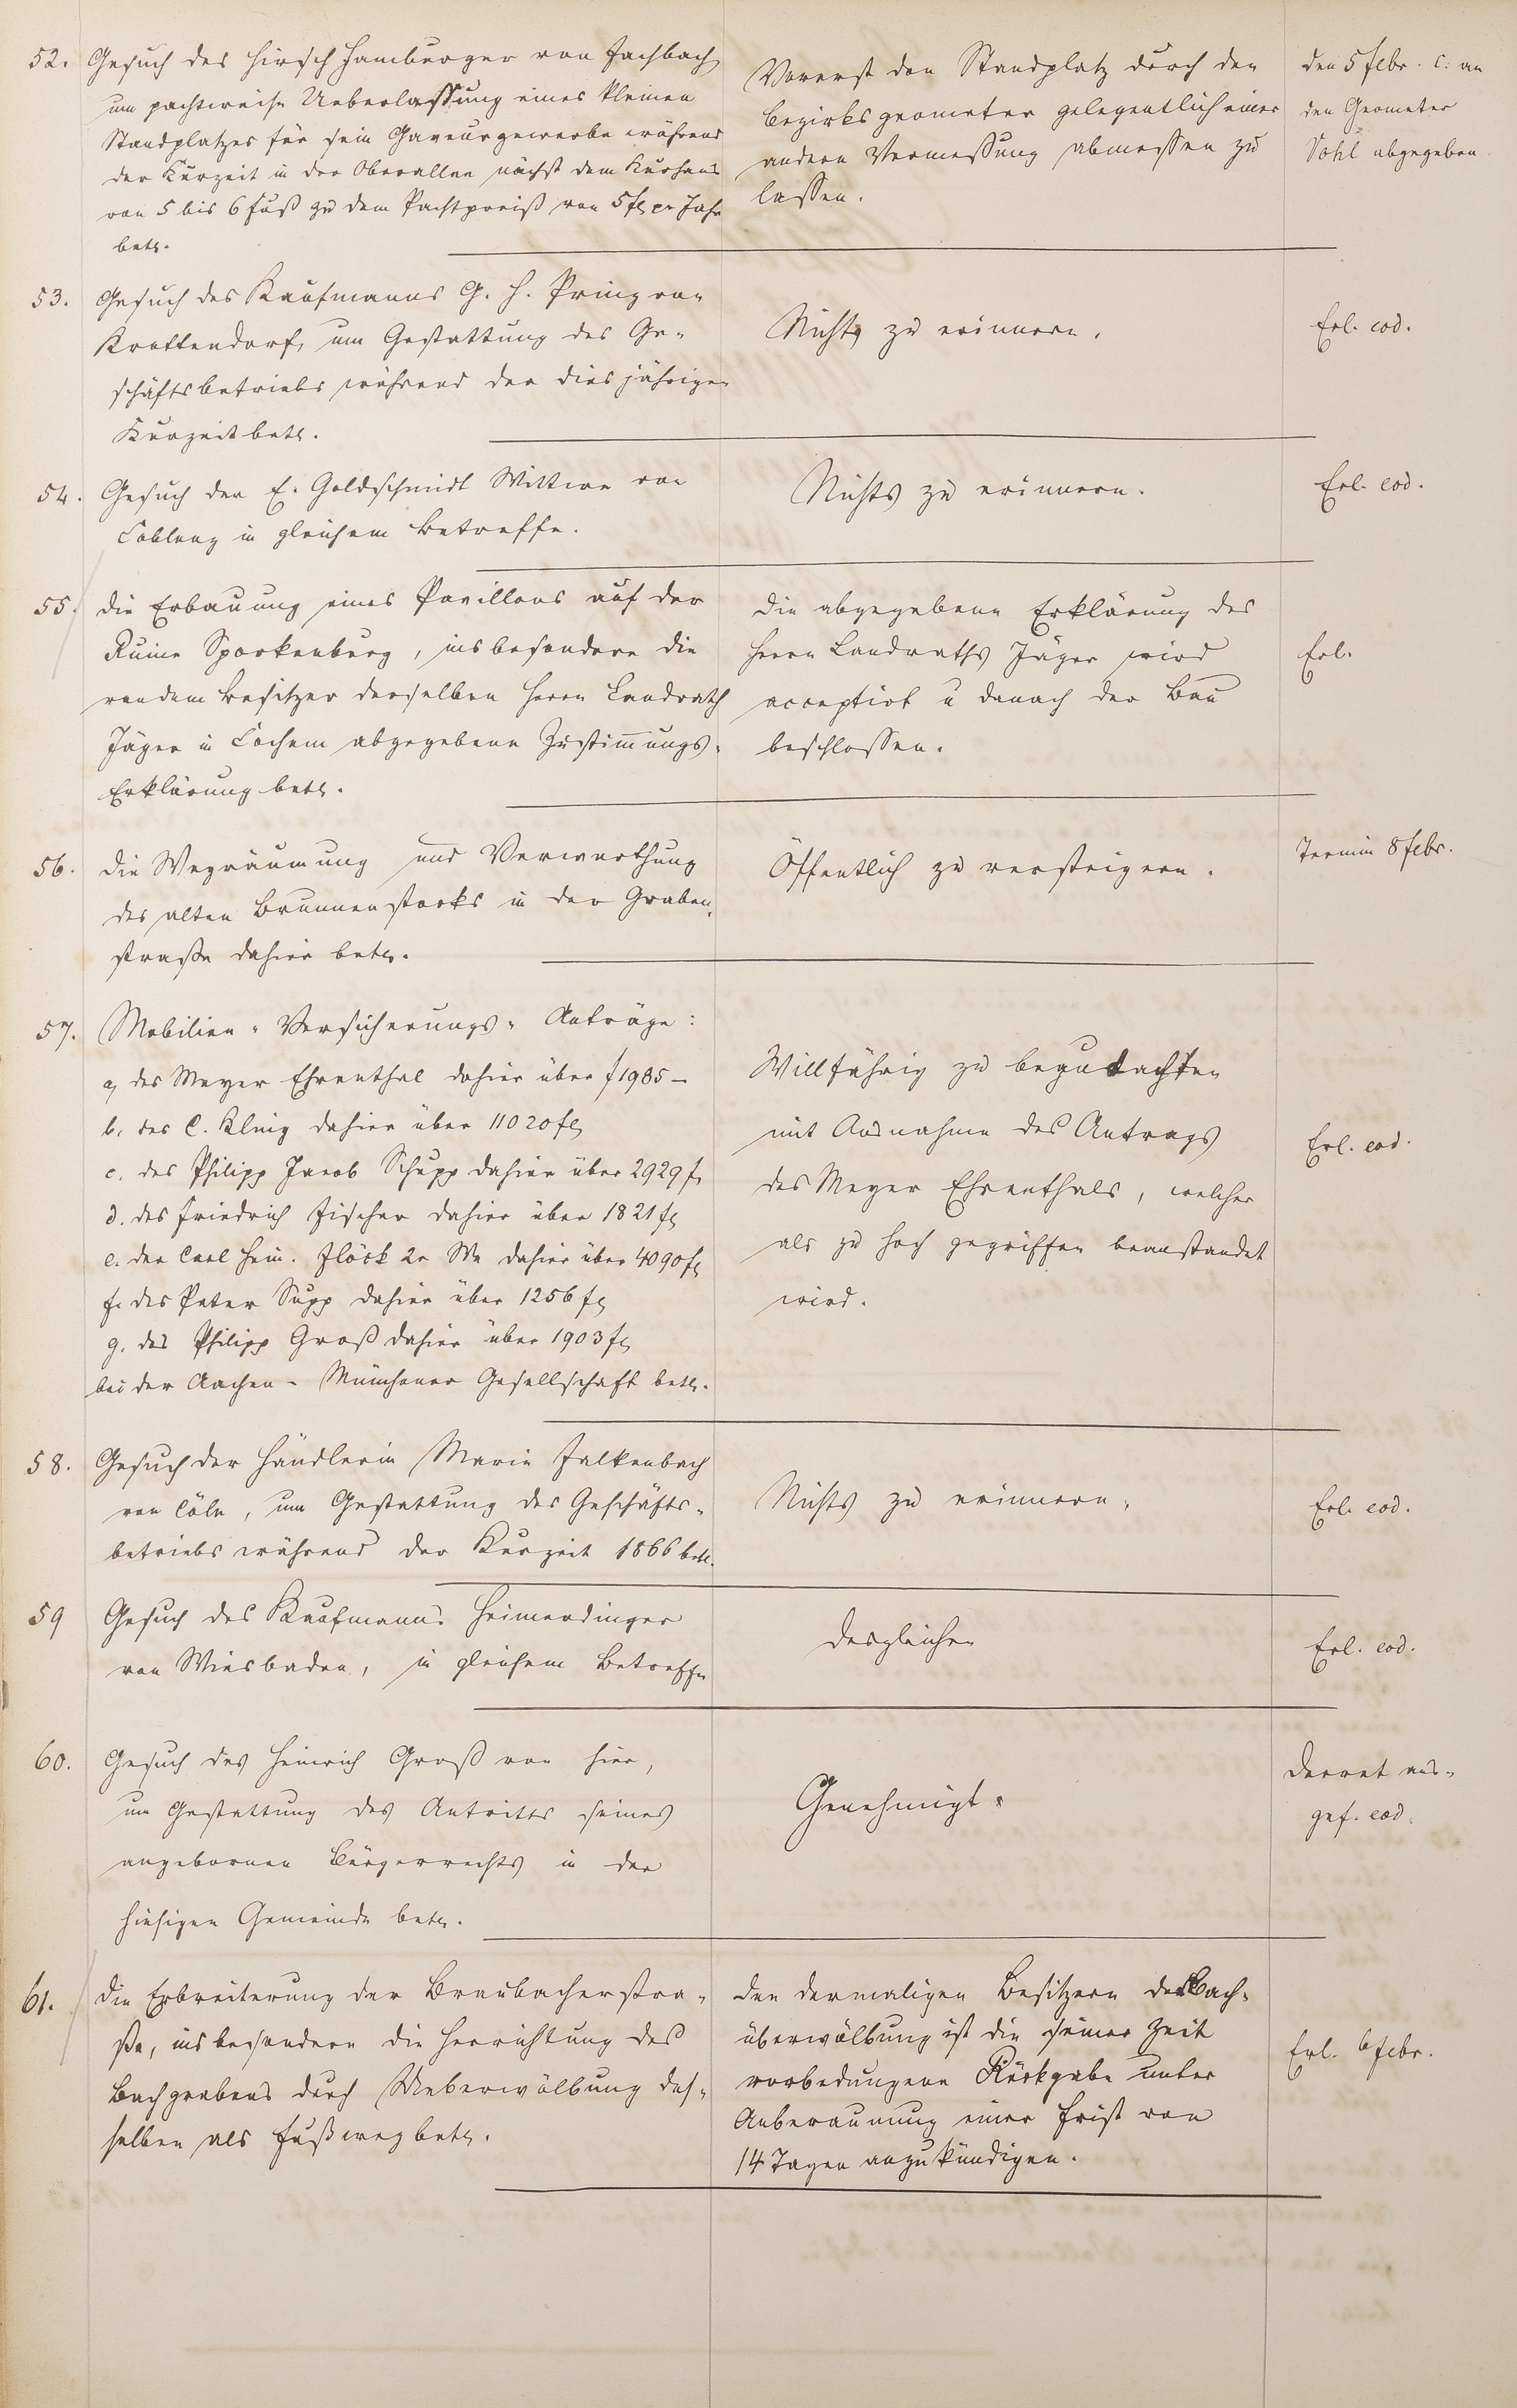 52.
Gesuch des Hirsch Hamburger von Fachbach
um pachtweise Ueberlassung eines kleinen
Standplatzes für sein Graveurgewerbe während
der Kurzeit in der Oberallee nächst dem Kurhaus
von 5 bis 6 Fuß zu dem Pachtpreiß von 5 fl pr Jahr
betr.
Vorerst den Standplatz durch den
Bezirksgeometer gelegentlich einer
andern Vermessung abmessen zu
lassen.
den 5 Febr. c. an
den Geometer
abgegeben
53.
Gesuch des Kaufmanns G. H. Prinz von
um Gestattung des Ge-
schäftsbetriebs während der diesjährigen
Kurzeit betr.
Nichts zu erinnern.
Erl. eod.
54.
Gesuch der E. Goldschmidt Wittwe von
Coblenz in gleichem Betreffe.
Nichts zu erinnern.
Erl. eod.
55.
Die Erbauung eines Pavillons auf der
Ruine Sporkenburg, insbesondere die
von dem Besitzer derselben Herrn Landrath
Jäger in Cochem abgegebene Zustimungs-
Erklärung betr.
Die abgegebene Erklärung des
Herrn Landraths Jäger wird
acceptirt u danach der Bau
beschlossen.
Erl.
56.
Die Wegräumung und Verwerthung
des alten Brunnenstocks in der Graben-
straße dahier betr.
Öffentlich zu versteigern.
Termin 8 Febr.
57.
Mobilien-Versicherungs-Anträge:
a, des Meyer Ehrenthal dahier über f 1985 –
b. des C. dahier über 11020 fl
c. des Philipp Jacob Schupp dahier über 2929 f
d. des Friedrich Fischer dahier über 1821 fl
e. der Carl Hein. Flöck 2r We dahier über 4090 fl
f. des Peter Supp dahier über 1256 fl
g. des Philipp Groß dahier über 1903 fl
bei der Aachen-Münchener Gesellschaft betr.
Willfährig zu begutachten
mit Ausnahme des Antrags
des Meyer Ehrenthals, welcher
als zu hoch gegriffen beanstandet
wird.
Erl. eod.
58.
Gesuch der Händlerin Marie Falkenbach
von Cöln, um Gestattung des Geschäfts-
betriebs während der Kurzeit 1866 betr.
Nichts zu erinnern.
Erl. eod.
59
Gesuch des Kaufmanns Heimerdinger
von Wiesbaden, in gleichem Betreffe
desgleichen
Erl. eod.
60.
Gesuch des Heinrich Groß von hier,
um Gestattung des Antritts seines
angebornen Bürgerrechts in der
hiesigen Gemeinde betr.
Genehmigt.
Decret aus-
gef. eod.
61.
Die Erbreiterung der Braubacherstra-
ße, insbesondere die Herrichtung des
Bachgrabens durch Ueberwölbung des-
selben als Fußweg betr.
Den dermaligen Besitzern der Bach-
überwölbung ist die seiner Zeit
vorbedungene Rückgabe unter
Anberaumung einer Frist von
14 Tagen anzukündigen.
Erl. 6 Febr.